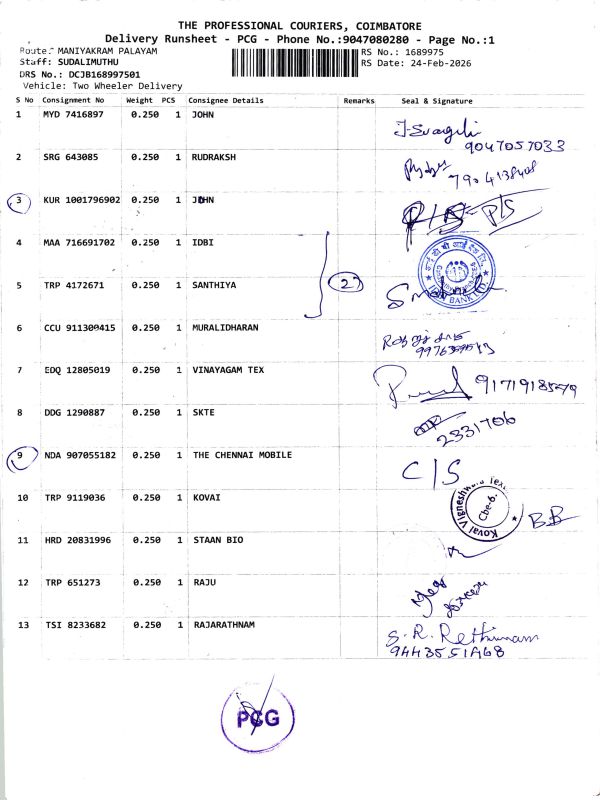 THE PROFESSIONAL COURIERS, COIMBATORE
Delivery Runsheet - PCG - Phone No.:9047080280 - Page No.:1
Route: MANIYAKRAM PALAYAM
RS No.: 1689975
Staff: SUDALIMUTHU
RS Date: 24-Feb-2026
DRS No.: DCJB168997501
Vehicle: Two Wheeler Delivery
S No Consignment No Weight PCS Consignee Details Remarks Seal & Signature
1 MYD 7416897 0.250 1 JOHN
9047057033
2 SRG 643085 0.250 1 RUDRAKSH
3 KUR 1001796902 0.250 1 JOHN P/S
4 MAA 716691702 0.250 1 IDBI
2
5 TRP 4172671 0.250 1 SANTHIYA
6 CCU 911309415 0.250 1 MURALIDHARAN
7 EDQ 12805019 0.250 1 VINAYAGAM TEX
8 DDG 1290887 0.250 1 SKTE
2331706
9 NDA 907055182 0.250 1 THE CHENNAI MOBILE C/S
10 TRP 9119036 0.250 1 KOVAI
Kovai Vigneshwara Tex
Cbe-6.
BB
11 HRD 20831996 0.250 1 STAAN BIO
12 TRP 651273 0.250 1 RAJU
13 TSI 8233682 0.250 1 RAJARATHNAM
S. R. Rethinam
PCG